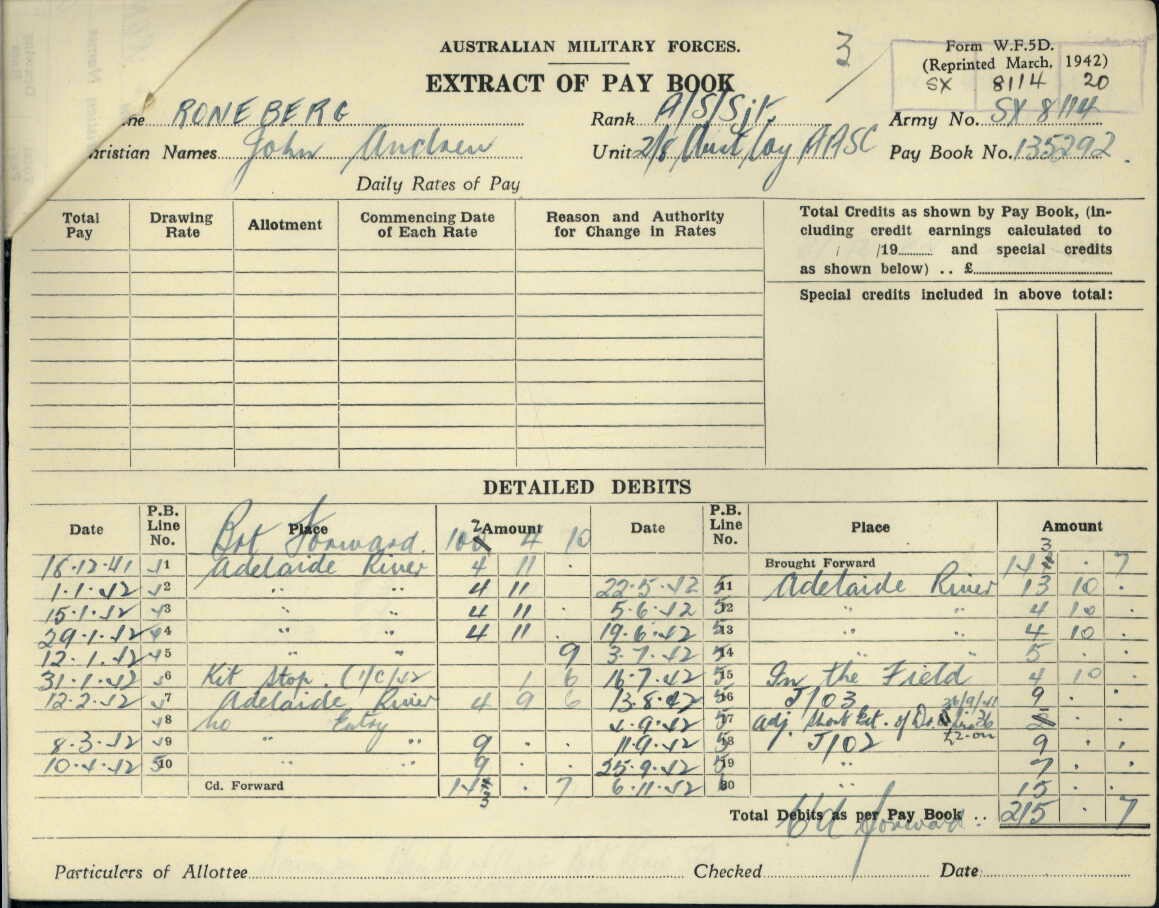 AUSTRALIAN MILITARY FORCES.
3
Form W.F.5D.
(Reprinted March, 1942)
SX 8114 20
EXTRACT OF PAY BOOK
me RONEBERG Rank A/S/Sjt. Army No. SX 8114
hristian Names John Andrew Unit 2/8 Coy AASC Pay Book No. 135292.
Daily Rates of Pay
Total Pay Drawing Rate Allotment Commencing Date of Each Rate Reason and Authority for Change in Rates
Total Credits as shown by Pay Book, (in-
cluding credit earnings calculated to
/ /19 and special credits
as shown below) .. £
Special credits included in above total:
DETAILED DEBITS
Date P.B. Line No. Place Amount Date P.B. Line No. Place Amount
Brot Forward. 102 4 10
16.12.41 41 Adelaide River 4 11 . Brought Forward 143 . 7
1.1.42 42 " " 4 11 22.5.42 511 Adelaide River 13 10 .
15.1.42 43 " " 4 11 . 5.6.42 512 " " 4 10 .
29.1.42 44 " " 4 11 . 19.6.42 513 " " 4 10 .
12.1.42 45 " " 9 3.7.42 514 " " 5 . .
31.1.42 46 Kit Stop. (1/C/42 1 6 16.7.42 515 In the Field 4 10 .
12.2.42 47 Adelaide River 4 9 6 13.8.42 516 J103 9 . .
48 No Entry 4.9.42 517 Adj. Short Ext. of D. 26/9/41 Line 36 £2-0n
8.3.42 49 " " 9 . . 11.9.42 518 J102 9 . .
10.4.42 510 " " 9 . . 25.9.42 519 " 7 . .
Cd. Forward 143 . 7 6.11.42 20 " 15 . .
Total Debits as per Pay Book .. Cd Forward. 215 . 7
Particulars of Allottee Checked Date